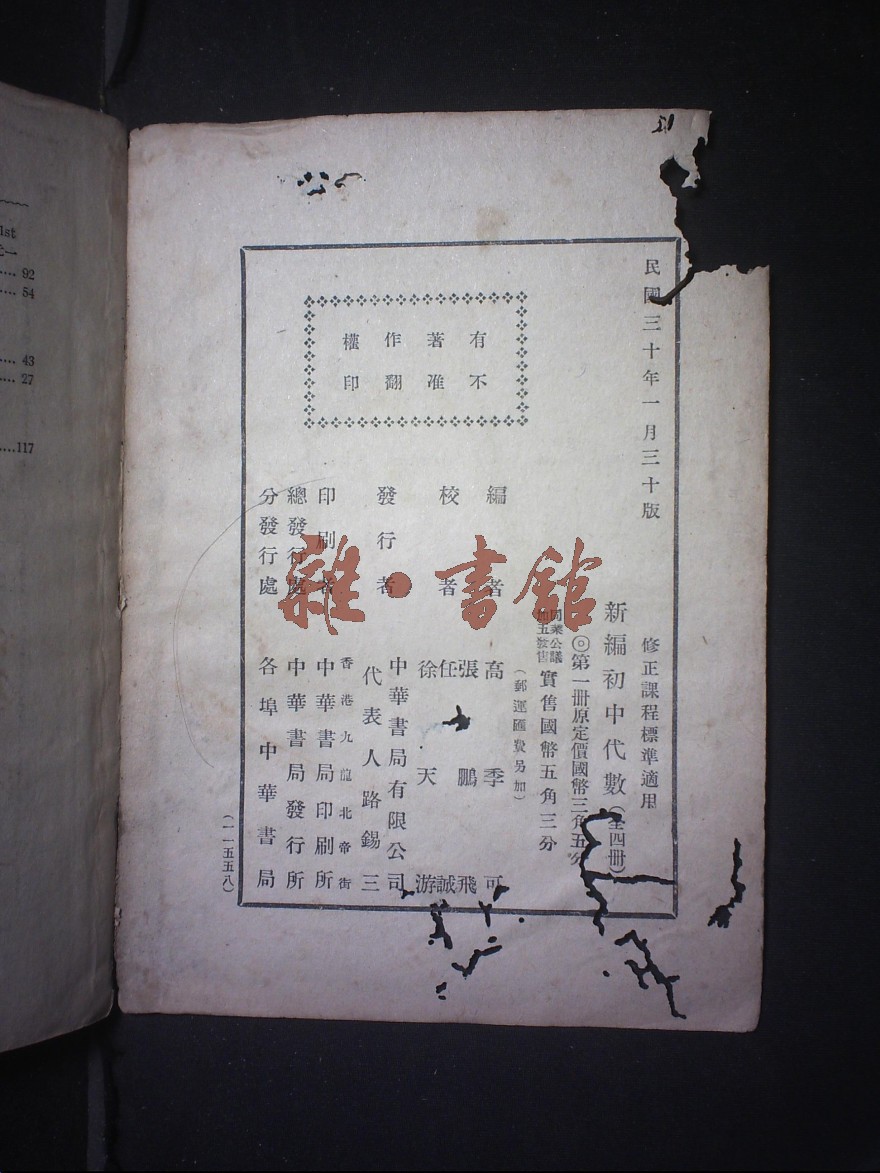 民國三十年一月三十版
修正課程標準適用
新編初中代數(全四冊)
◎第一冊原定價國幣三角五分
同業公議
實售國幣五角三分
(郵運匯費另加)
有不
著准
作翻
權印
編者 高季可
張鵬飛
校者 任誠
徐天游
發行者 中華書局有限公司
代表人路錫三
香港九龍北帝街
印刷者 中華書局印刷所
總發行處 中華書局發行所
分發行處 各埠中華書局
(一一五五八)
雜·書館
1st
92
54
43
27
117